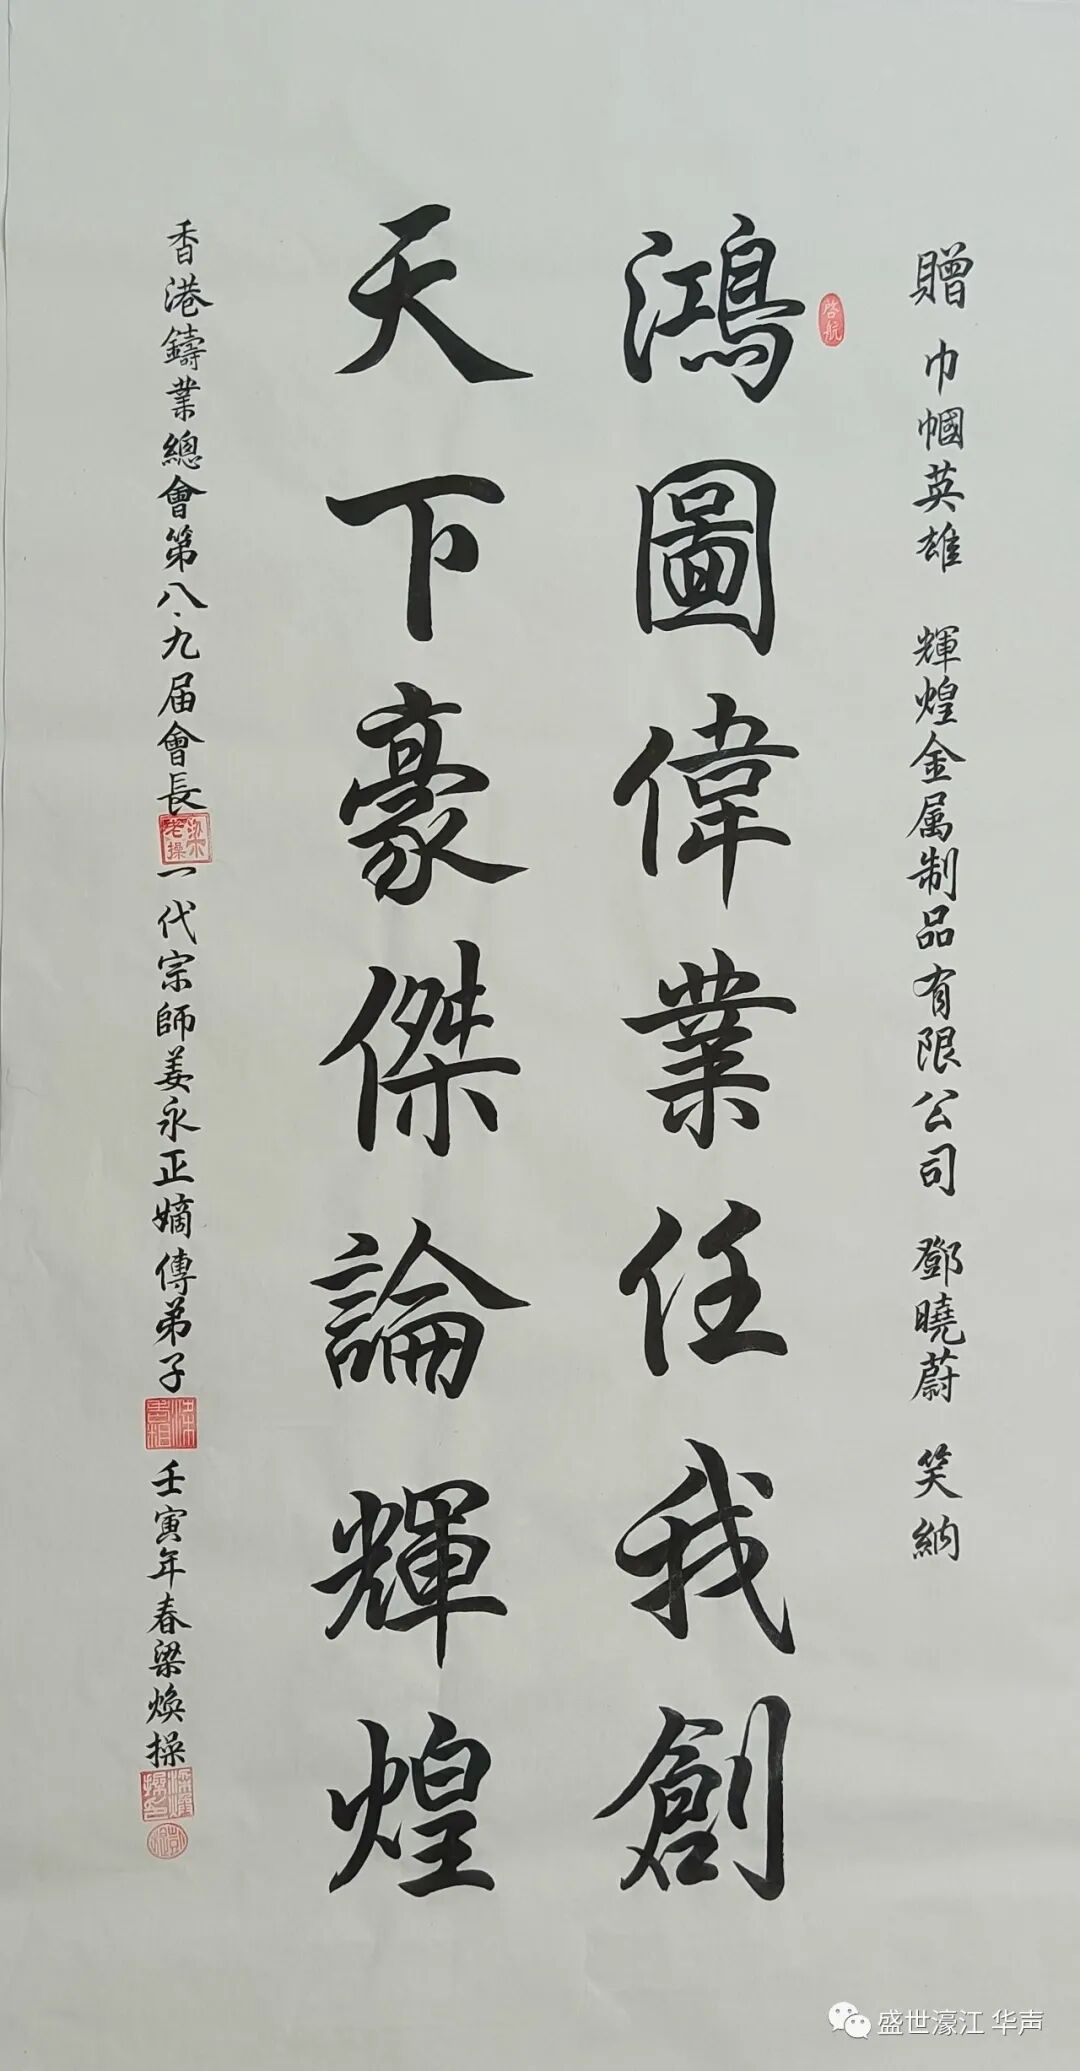 贈 巾幗英雄 輝煌金属制品有限公司 鄧曉蔚 笑納
啓航
鴻圖偉業任我創
天下豪傑論輝煌
香港鑄業總會第八·九届會長
一代宗師姜永正嫡傳弟子
壬寅年春梁煥操
盛世濠江 华声